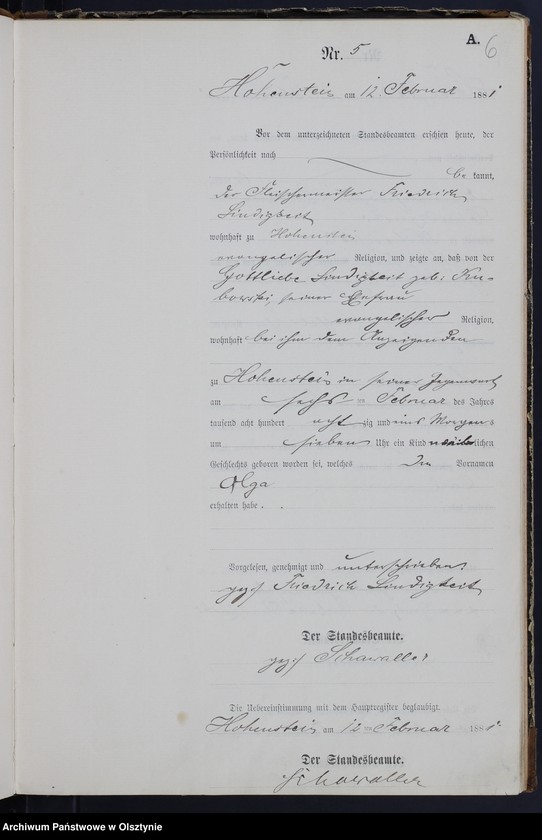 A. 6
Nr. 5
Hohenstein am 12. Februar 1881
Vor dem unterzeichneten Standesbeamten erschien heute, der
Persönlichkeit nach
be kannt,
der Fleischermeister Friedrich
Lindigkeit
wohnhaft zu Hohenstein
evangelischer Religion, und zeigte an, daß von der
Gottliebe Lindigkeit geb: Ku-
bowski, seiner Ehefrau
evangelischer Religion,
wohnhaft bei ihm dem Anzeigenden
zu Hohenstein in seiner Gegenwart
am sechs = Februar des Jahres
tausend acht hundert acht zig und eins Morgens
um sieben Uhr ein Kind weiblichen
Geschlechts geboren worden sei, welches den Vornamen
Olga
erhalten habe.
Vorgelesen, genehmigt und unterschrieben
gez: Friedrich Lindigkeit
Der Standesbeamte.
gez: Schawaller
Die Uebereinstimmung mit dem Hauptregister beglaubigt.
Hohenstein am 12 = Februar 1881
Der Standesbeamte.
Schawaller
Archiwum Państwowe w Olsztynie